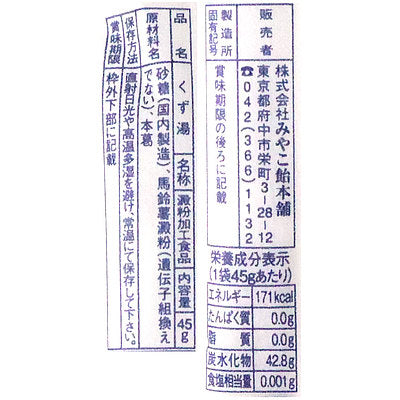 品名 くず湯 名称 澱粉加工食品 内容量 45g
原材料名 砂糖(国内製造)、馬鈴薯澱粉(遺伝子組換え
でない)、本葛
保存方法 直射日光や高温多湿を避け、常温にて保存して下さい。
賞味期限 枠外下部に記載
販売者 株式会社みやこ飴本舗
東京都府中市栄町3-28-12
☎042(366)1132
製造所固有記号 賞味期限の後ろに記載
栄養成分表示
(1袋45gあたり)
エネルギー 171kcal
たんぱく質 0.0g
脂質 0.0g
炭水化物 42.8g
食塩相当量 0.001g